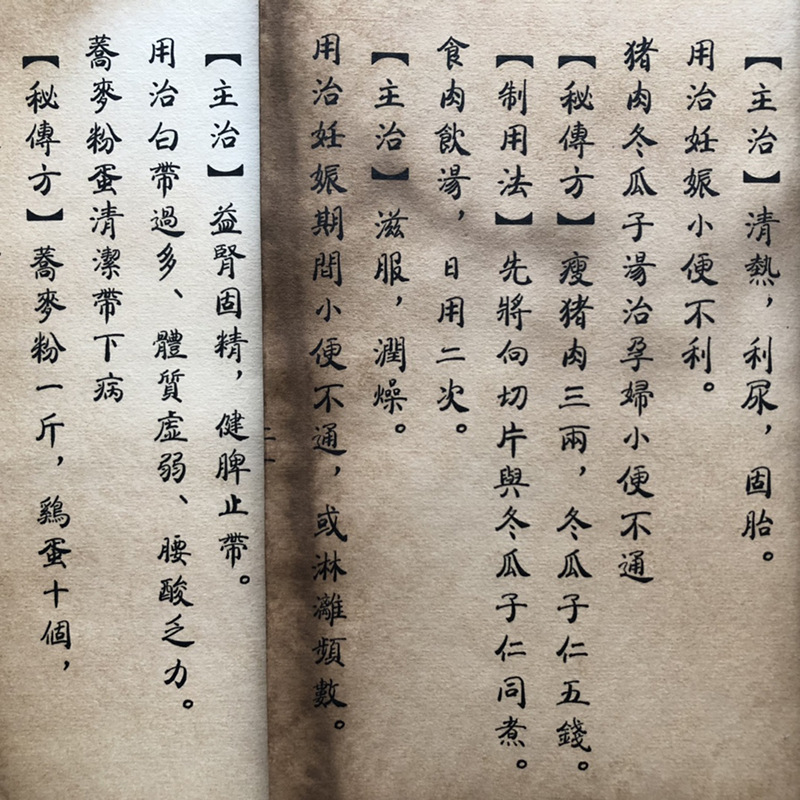 【主治】清熱，利尿，固胎。
用治妊娠小便不利。
猪肉冬瓜子湯治孕婦小便不通
【秘傳方】瘦猪肉三兩，冬瓜子仁五錢。
【制用法】先將肉切片與冬瓜子仁同煮。
食肉飲湯，日用二次。
【主治】滋服，潤燥。
用治妊娠期間小便不通，或淋漓頻數。
【主治】益腎固精，健脾止帶。
用治白帶過多、體質虛弱、腰酸乏力。
蕎麥粉蛋清潔帶下病
【秘傳方】蕎麥粉一斤，鷄蛋十個，